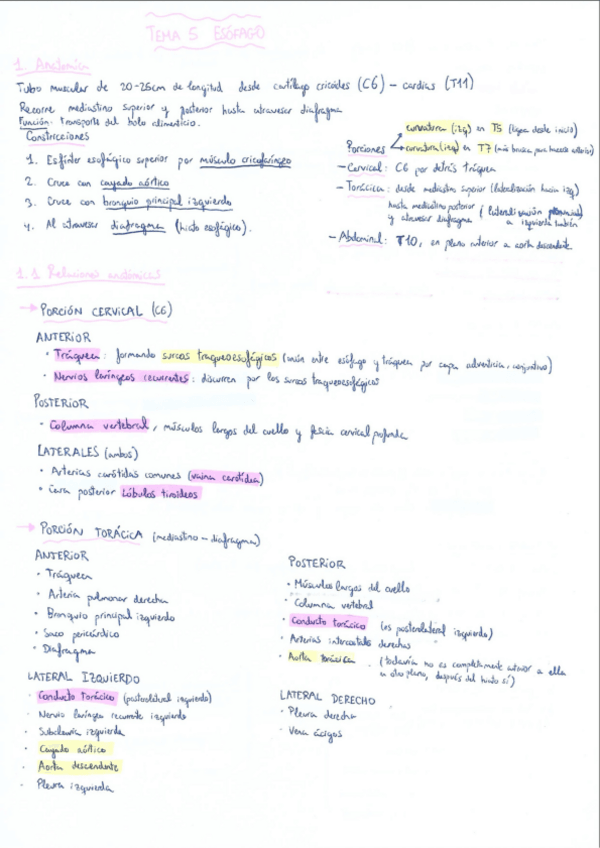 TEMA 5 ESÓFAGO
1. Anatomía
Tubo muscular de 20-25cm de longitud desde cartílago cricoides (C6) – cardias (T11)
Recorre mediastino superior y posterior hasta atravesar diafragma
Función: transporte del bolo alimenticio.
Constricciones
1. Esfínter esofágico superior por músculo cricofaríngeo
2. Cruce con cayado aórtico
3. Cruce con bronquio principal izquierdo
4. Al atravesar diafragma (hiato esofágico).
Porciones
curvatura (izq) en T5 (ligera desde inicio)
curvatura (izq) en T7 (más brusca para hacerse anterior)
– Cervical: C6 por detrás tráquea
– Torácica: desde mediastino superior (lateralización hacia izq)
hasta mediastino posterior (lateralización
y atraviesa diafragma a izquierda también
– Abdominal: T10, en plano anterior a aorta descendente
1.1 Relaciones anatómicas
→ PORCIÓN CERVICAL (C6)
ANTERIOR
• Tráquea: formando surcos traqueoesofágicos (unión entre esófago y tráquea por capa adventicia, conjuntivo)
• Nervios laríngeos recurrentes: discurren por los surcos traqueoesofágicos
POSTERIOR
• Columna vertebral, músculos largos del cuello y fascia cervical profunda
LATERALES (ambos)
• Arterias carótidas comunes (vaina carotídea)
• Cara posterior lóbulos tiroideos
→ PORCIÓN TORÁCICA (mediastino – diafragma)
ANTERIOR
• Tráquea
• Arteria pulmonar derecha
• Bronquio principal izquierdo
• Saco pericárdico
• Diafragma
LATERAL IZQUIERDO
• Conducto torácico (posterolateral izquierdo)
• Nervio laríngeo recurrente izquierdo
• Subclavia izquierda
• Cayado aórtico
• Aorta descendente
• Pleura izquierda
POSTERIOR
• Músculos largos del cuello
• Columna vertebral
• Conducto torácico (es posterolateral izquierdo)
• Arterias intercostales derechas
• Aorta torácica. (todavía no es completamente anterior a ella
u otro plano, después del hiato sí)
LATERAL DERECHO
• Pleura derecha
• Vena ácigos